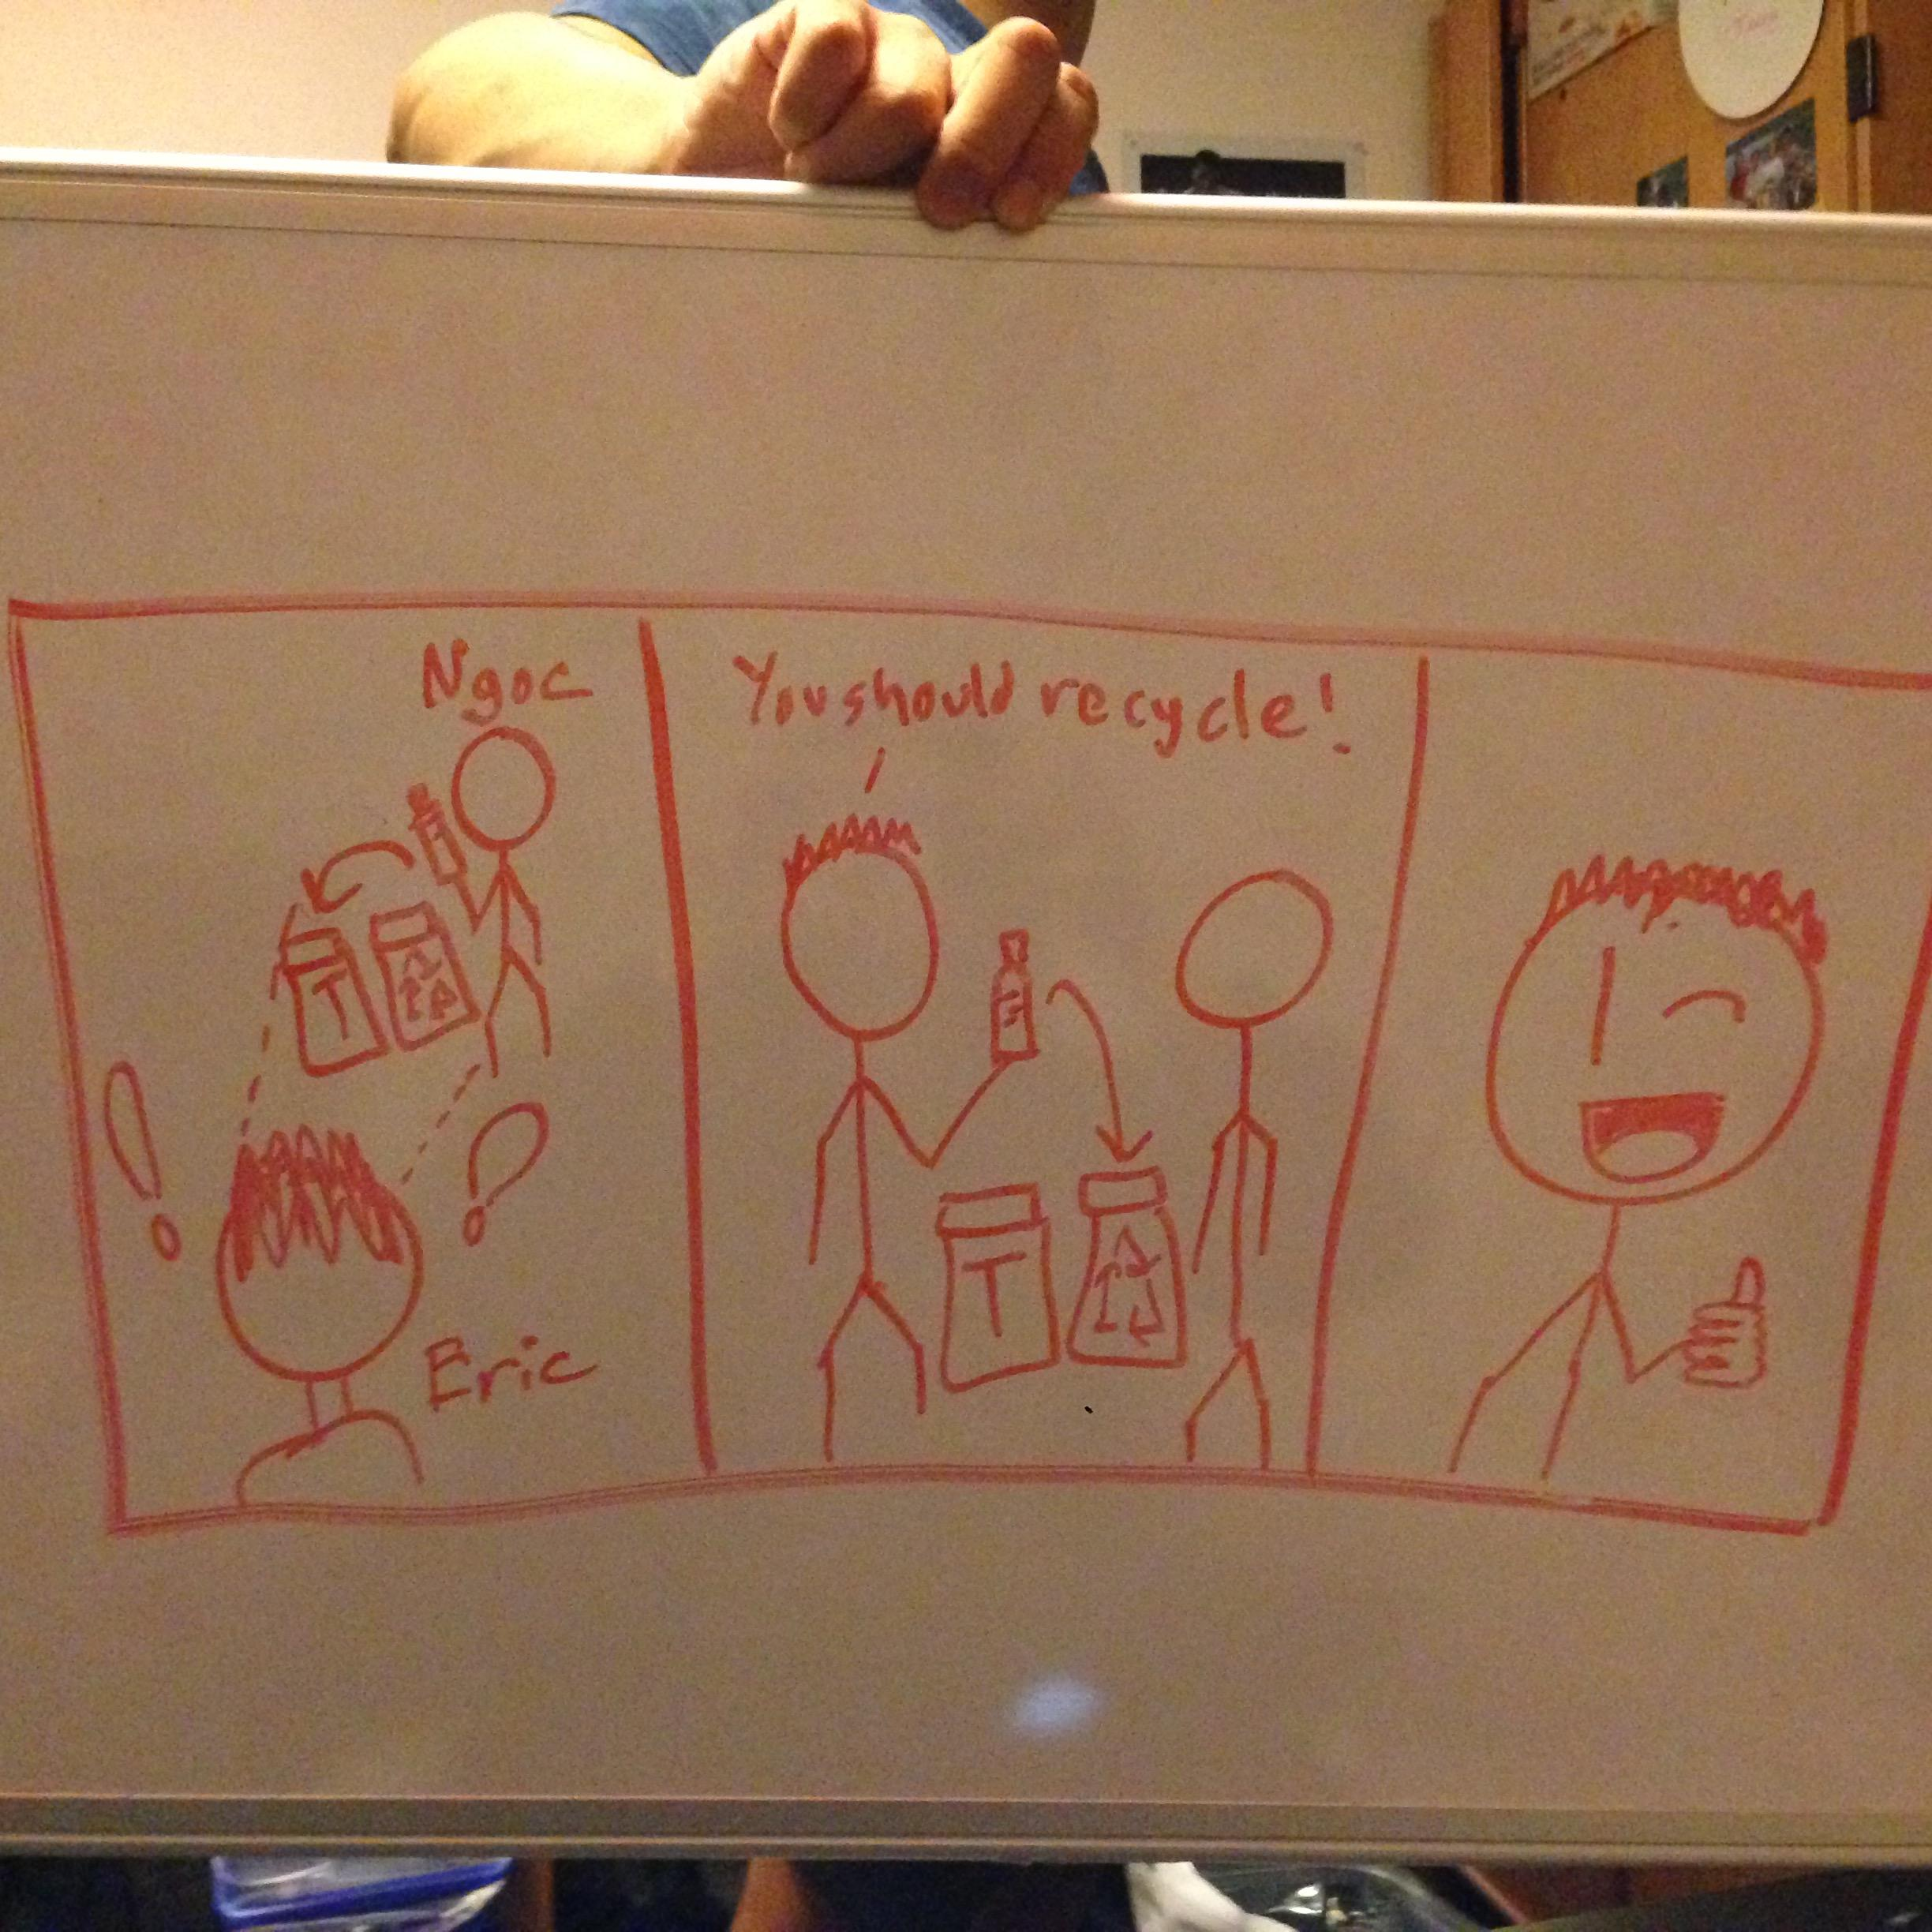 Ngoc
T
Eric
You should recycle!
T